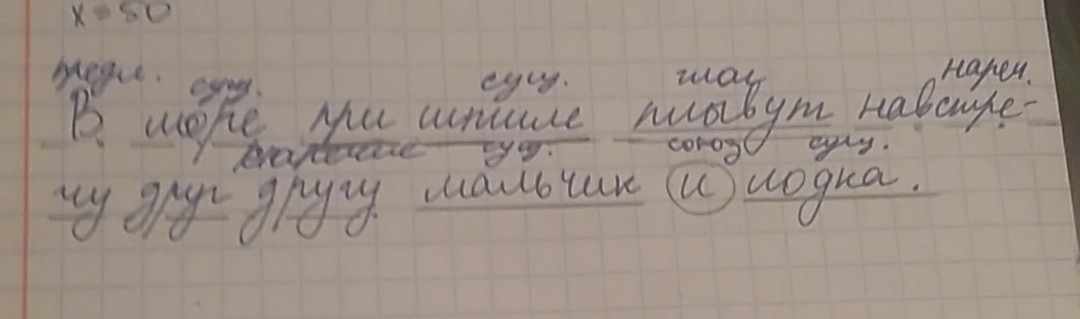 x = 50
предл. сущ. сущ. глаг. нареч.
В море при штиле плывут навстре-
сущ. союз сущ.
чу друг другу мальчик и лодка.